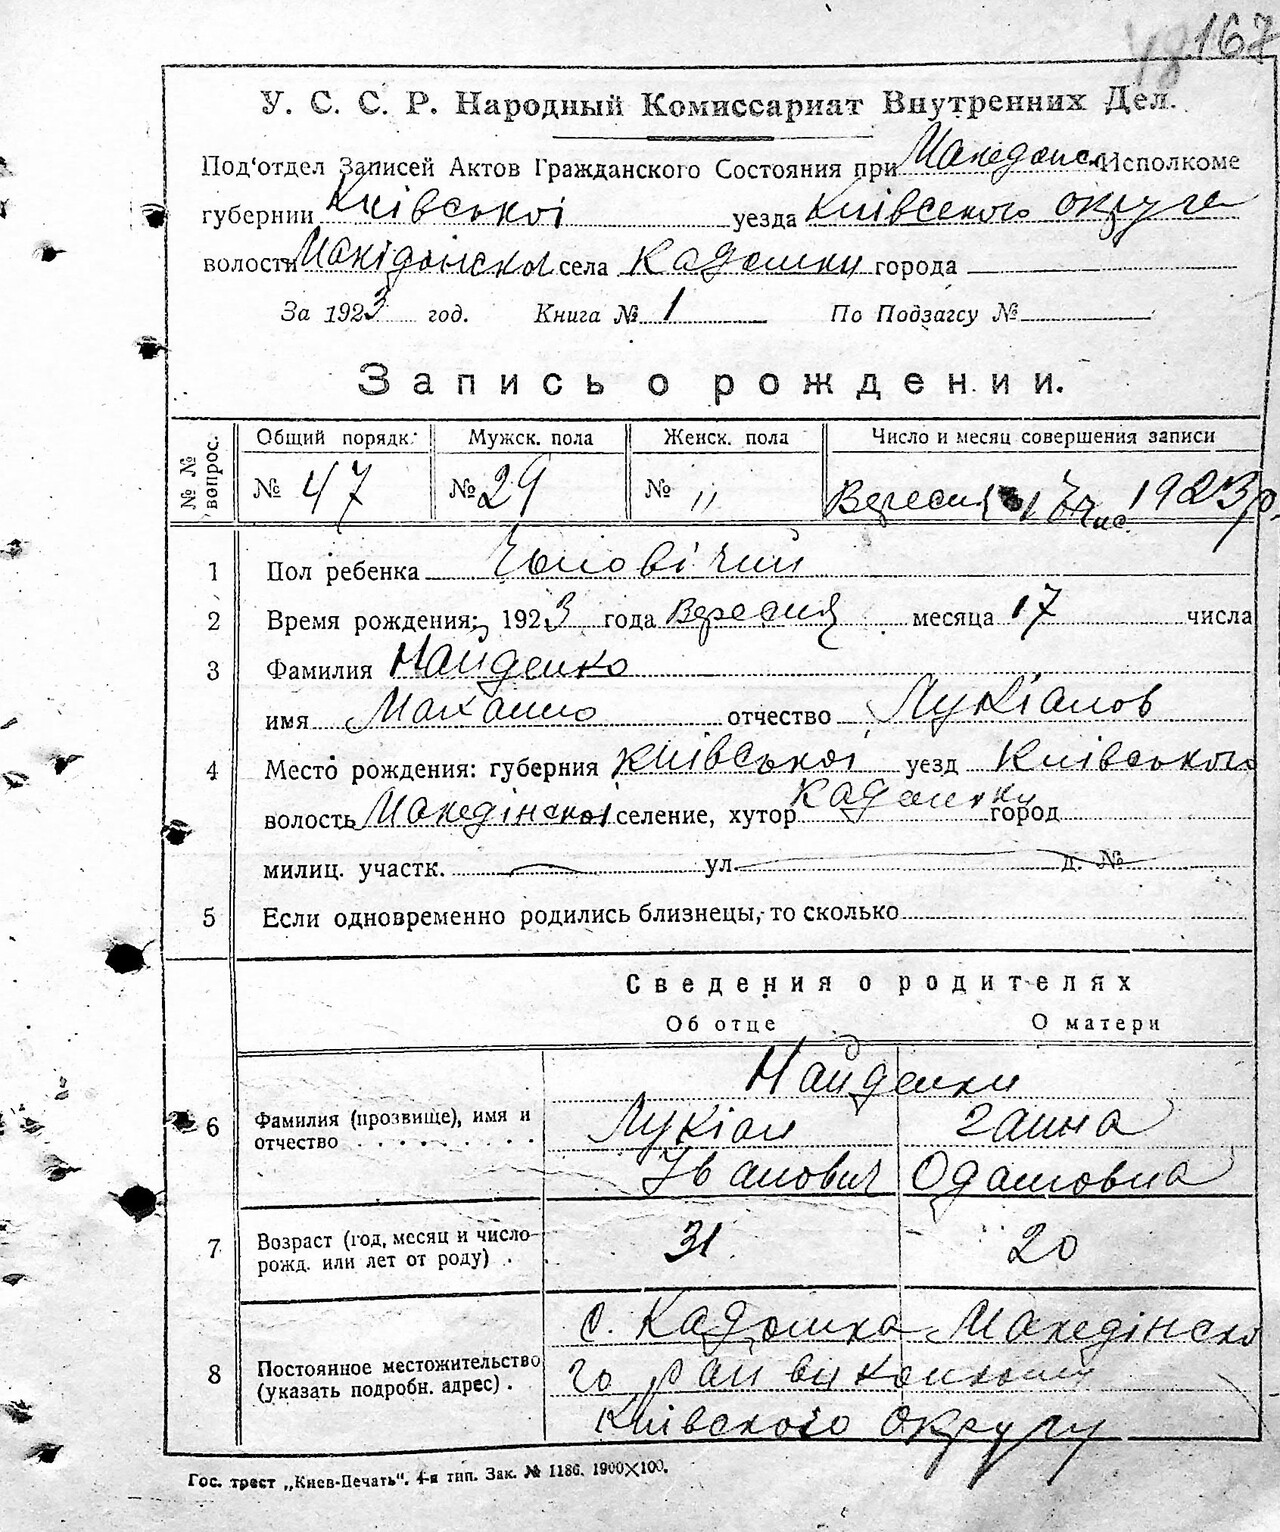 167
У. С. С. Р. Народный Комиссариат Внутренних Дел.
Под'отдел Записей Актов Гражданского Состояния при Македонс. Исполкоме
губернии Київської уезда Київського округа
волости села Кадомки города
За 1923 год. Книга № 1 По Подзагсу №
Запись о рождении.
№ № вопрос. Общий порядк. Мужск. пола Женск. пола Число и месяц совершения записи
№ 47 № 29 № " Вересня 17 чис. 1923 р.
1 Пол ребенка Чоловічий
2 Время рождения: 1923 года Вересня месяца 17 числа
3 Фамилия Найденко
имя отчество Лукіанов
4 Место рождения: губерния Київської уезд Київського
волость Македінскої селение, хутор Кадомки город
милиц. участк. ул. д. №
5 Если одновременно родились близнецы, то сколько
Сведения о родителях
Об отце О матери
Найденки
6 Фамилия (прозвище), имя и Лукіан Ганна
отчество . . . . . . . . . Іванович Одамовна
7 Возраст (год, месяц и число 31 20
рожд. или лет от роду) . .
с. Кадомка Македінско
8 Постоянное местожительство го рай виконкому
(указать подробн. адрес) . Київского округу
Гос. трест „Киев-Печать". 4-я тип. Зак. № 1186. 1900×100.